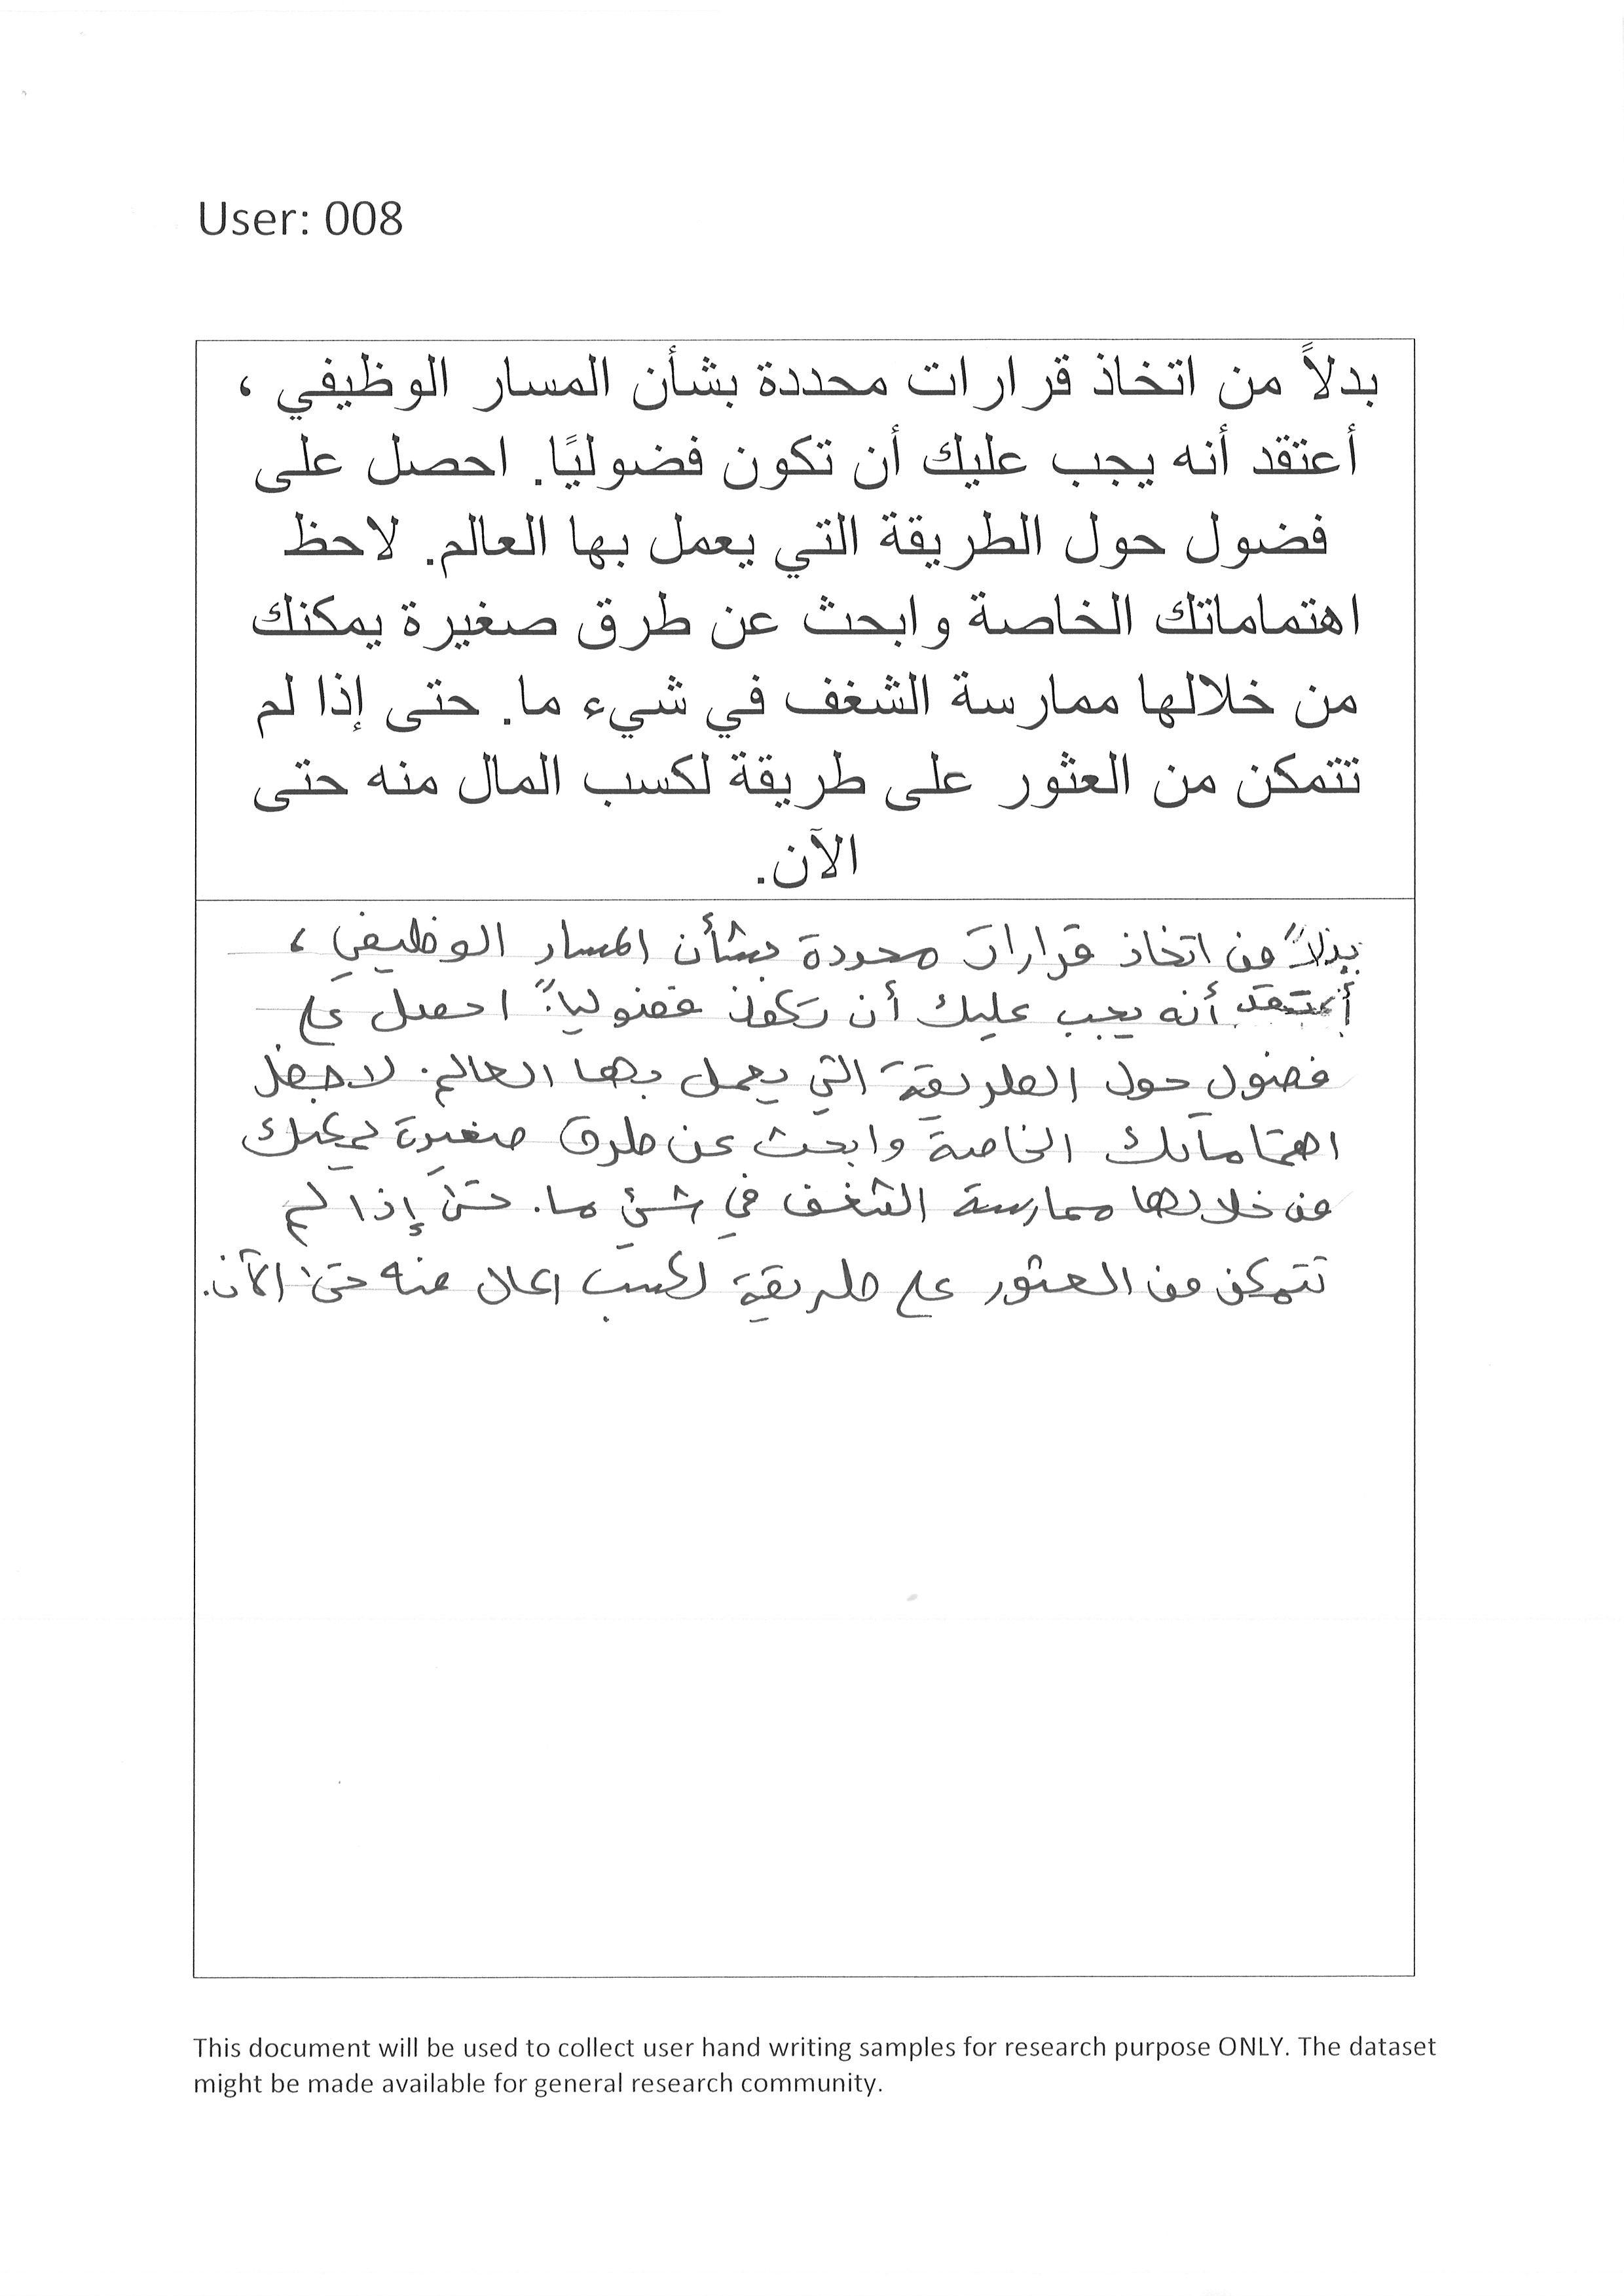 User: 008
بدلاً من اتخاذ قرارات محددة بشأن المسار الوظيفي ،
أعتقد أنه يجب عليك أن تكون فضوليًا. احصل على
فضول حول الطريقة التي يعمل بها العالم. لاحظ
اهتماماتك الخاصة وابحث عن طرق صغيرة يمكنك
من خلالها ممارسة الشغف في شيء ما. حتى إذا لم
تتمكن من العثور على طريقة لكسب المال منه حتى
الآن.
بدلاً من اتخاذ قرارات محددة بشأن المسار الوظيفي ،
أعتقد أنه يجب عليك أن تكون فضولياً. احصل على
فضول حول الطريقة التي يعمل بها العالم. لاحظ
اهتماماتك الخاصة وابحث عن طرق صغيرة يمكنك
من خلالها ممارسة الشغف في شئ ما. حتى إذا لم
تتمكن من العثور على طريقة لكسب المال منه حتى الآن.
This document will be used to collect user hand writing samples for research purpose ONLY. The dataset
might be made available for general research community.